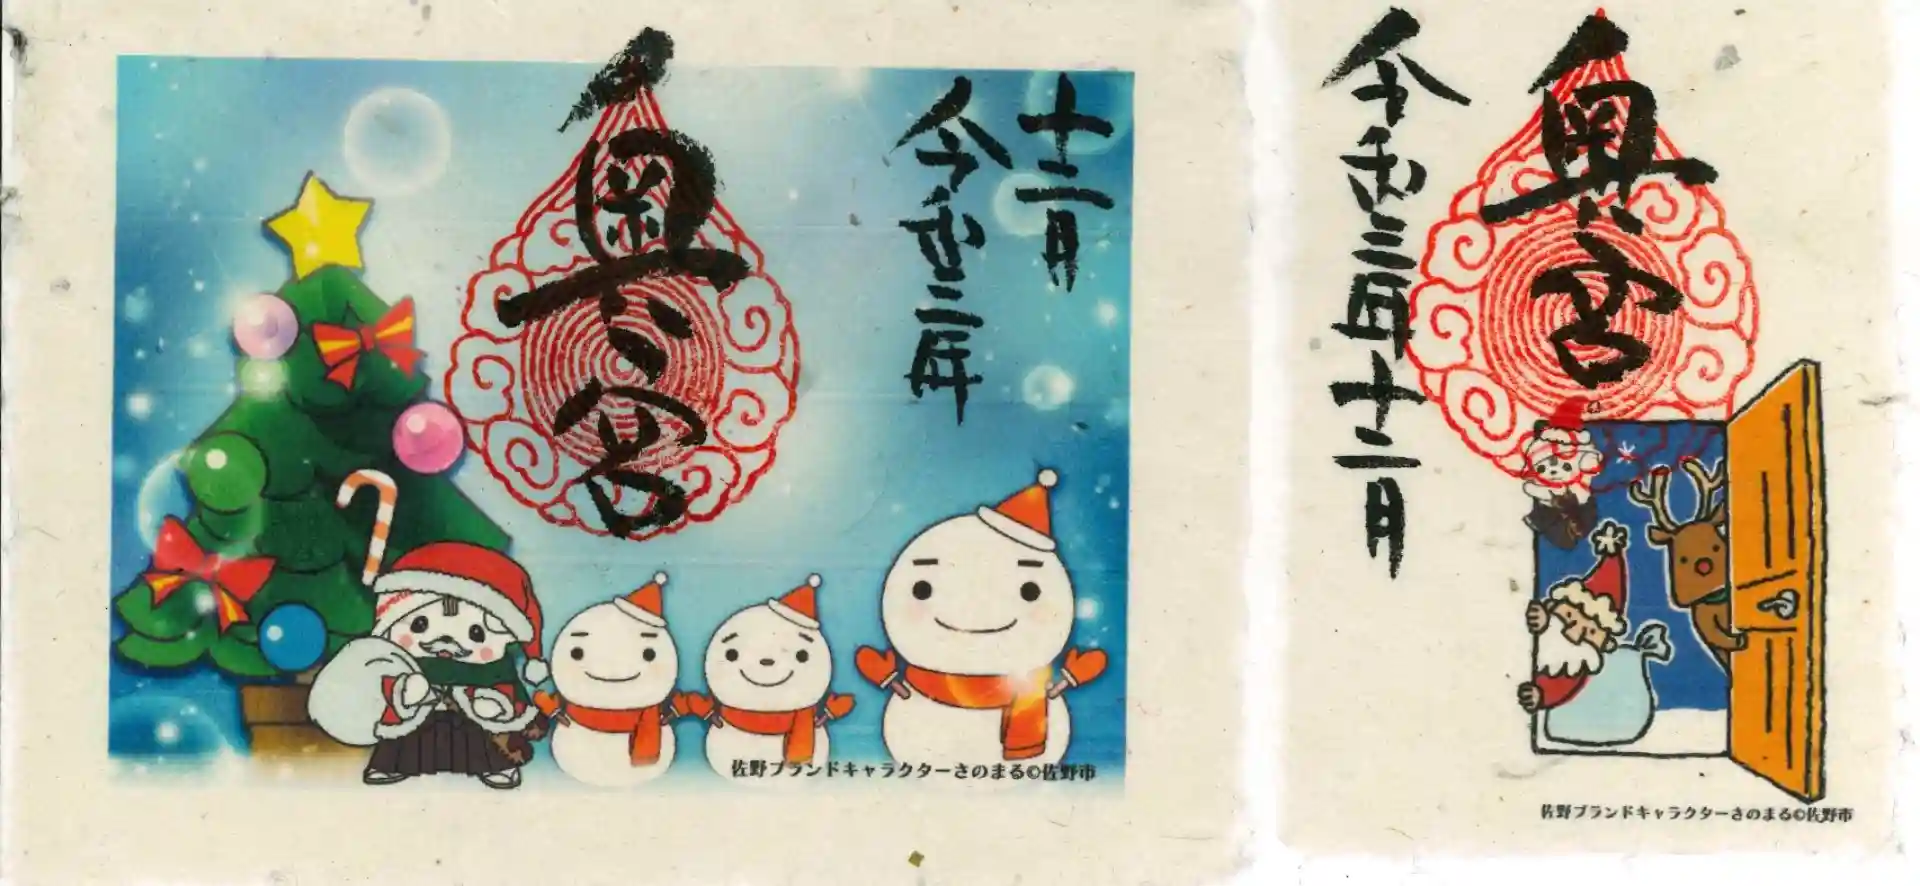 十二月
令和三年
奥之宮
佐野ブランドキャラクターさのまる©佐野市
奥之宮
令和三年十二月
佐野ブランドキャラクターさのまる©佐野市